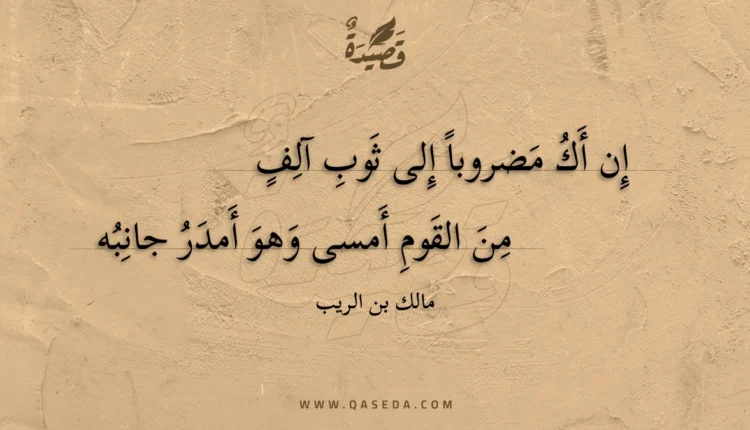 قَصِيدَةٌ
إِن أَكُ مَضروباً إِلى ثَوبِ آلِفٍ
مِنَ القَومِ أَمسى وَهوَ أَمدَرُ جانِبُه
مالك بن الريب
WWW.QASEDA.COM